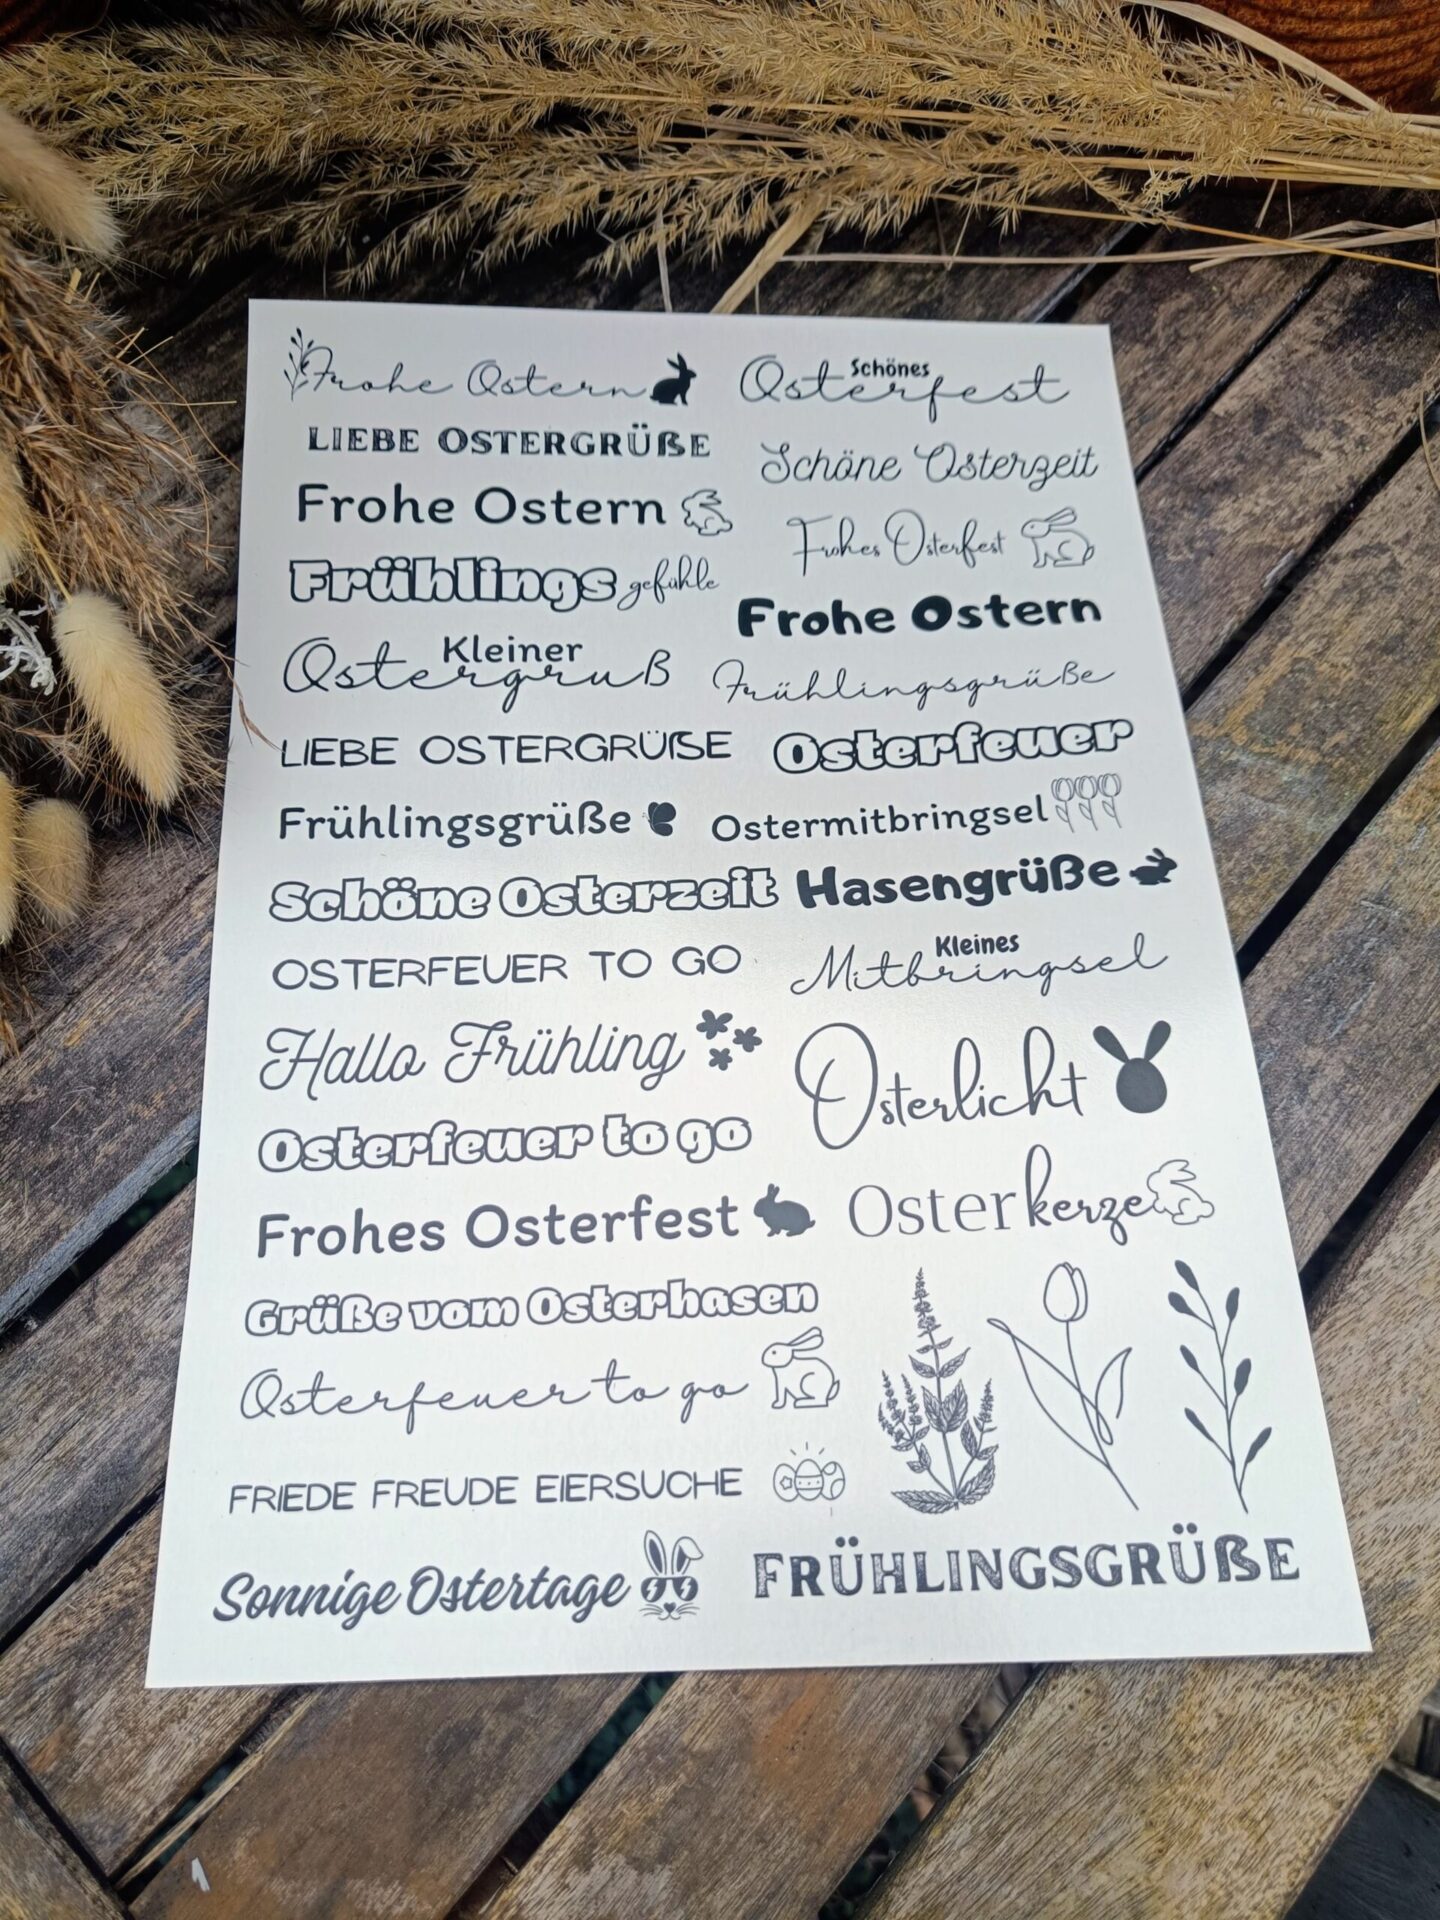 Frohe Ostern
LIEBE OSTERGRÜßE
Frohe Ostern
Frühlingsgefühle
Kleiner
Ostergruß
LIEBE OSTERGRÜßE
Frühlingsgrüße
Schöne Osterzeit
OSTERFEUER TO GO
Hallo Frühling
Osterfeuer to go
Frohes Osterfest
Grüße vom Osterhasen
Osterfeuer to go
FRIEDE FREUDE EIERSUCHE
Sonnige Ostertage
Schönes
Osterfest
Schöne Osterzeit
Frohes Osterfest
Frohe Ostern
Frühlingsgrüße
Osterfeuer
Ostermitbringsel
Hasengrüße
Kleines
Mitbringsel
Osterlicht
Osterkerze
FRÜHLINGSGRÜßE